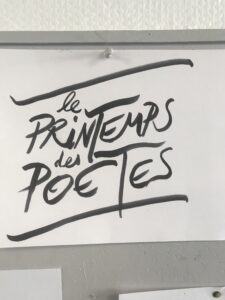 le
PRINTEMPS
des
POETES